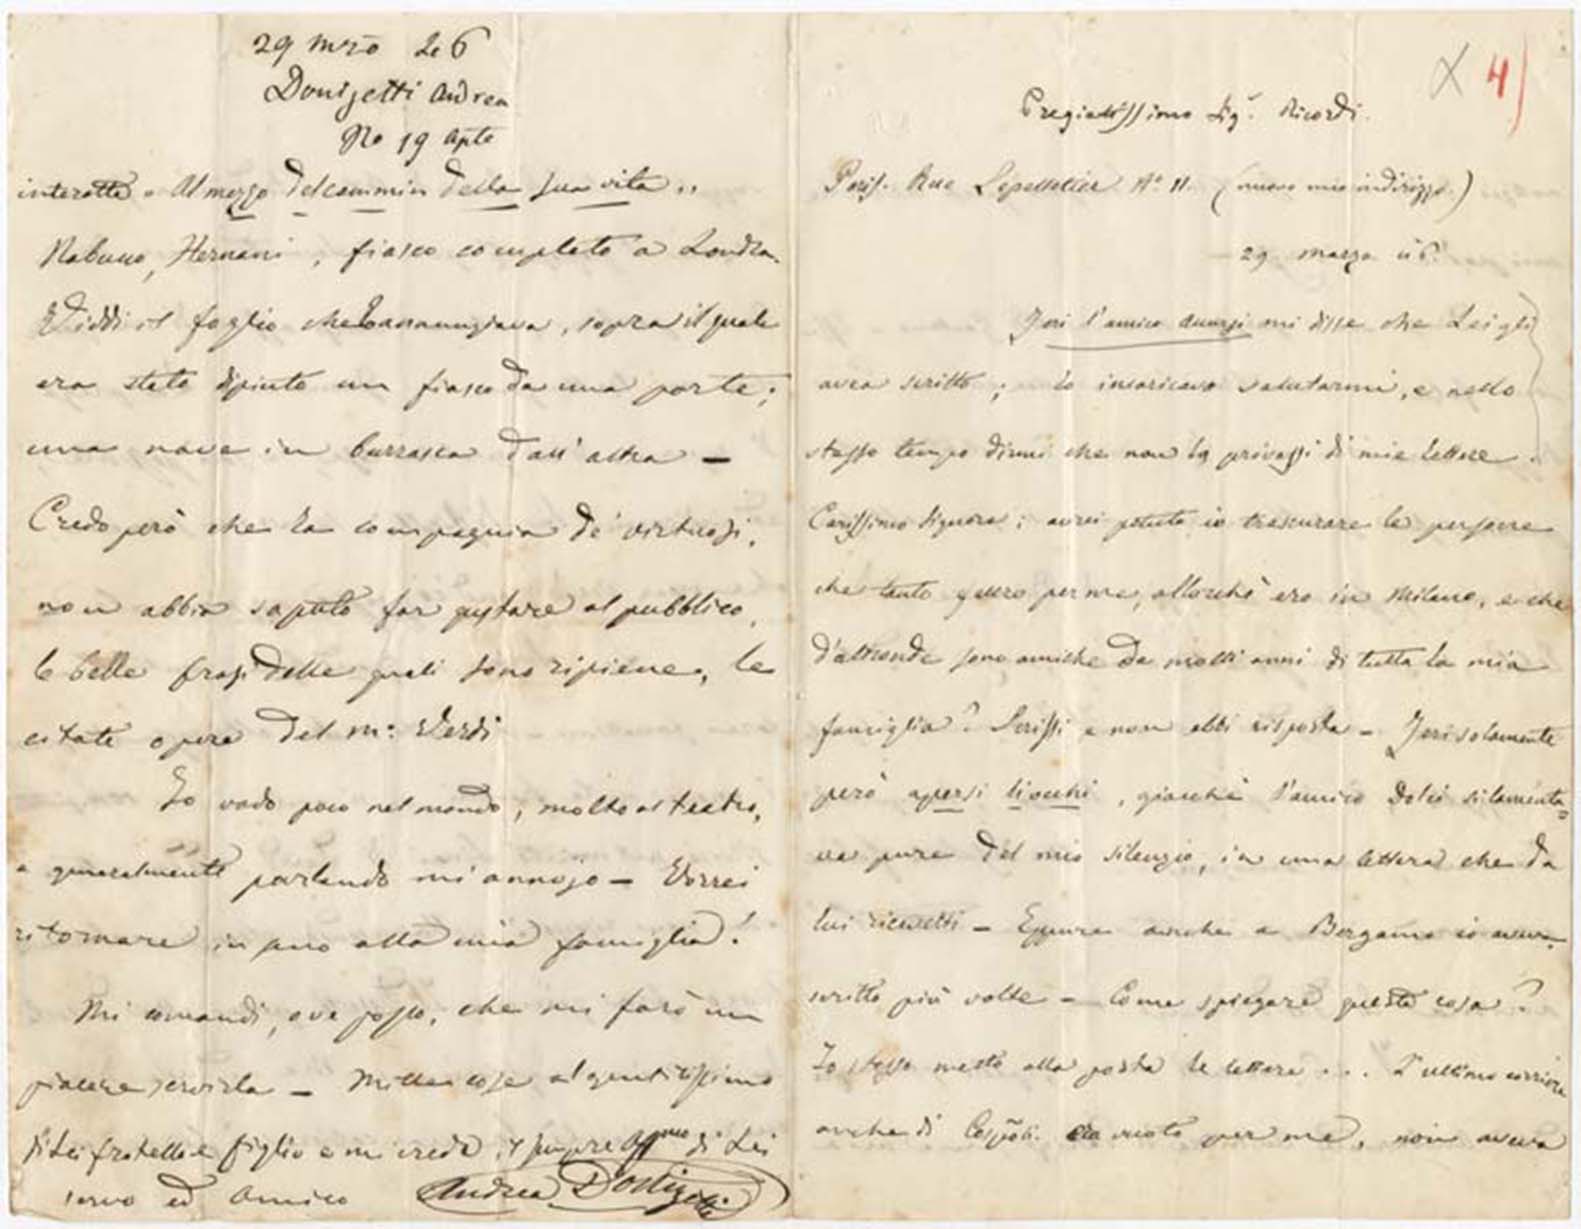 4
Pregiatissimo Sig.r Ricordi.
Parigi. Rue Lepelletier N.o 11. (nuovo mio indirizzo.)
29 marzo
Jeri l'amico Accursi mi disse che Lei gli
avea scritto; lo incaricava salutarmi, e nello
stesso tempo dirmi che non la privassi di mie lettere.
Carissimo Signore; avrei potuto io trascurare le persone
che tanto per me, allorchè ero in Milano, e che
d'altronde sono amiche da molti anni di tutta la mia
famiglia? Scrissi e non ebbi risposta – Jeri solamente
però apersi li occhi, giacchè l'amico Dolci si lamenta=
va pure del mio silenzio, in una lettera che da
lui ricevetti – Eppure anche a Bergamo io aveva
scritto più volte – Come spiegare questa cosa?
Io stesso metto alla posta le lettere . . . L'ultimo corriere
anche di era vuoto per me, non aveva
29 mzo 46
Donizetti Andrea
Ro 19 Aple
interotte "Al mezzo del cammin della sua vita"
Nabucco, Hernani, fiasco completo a Londra.
Viddi il foglio che annunziava, sopra il quale
era stato dipinto un fiasco da una parte;
una nave in burrasca dall'altra –
Credo però che la compagnia de' virtuosi,
non abbia saputo far gustare al pubblico,
le belle frasi delle quali sono ripiene, le
citate opere del m:o Verdi
Io vado poco nel mondo, molto al teatro,
e generalmente parlando mi annojo – Vorrei
ritornare in seno alla mia famiglia!
Mi comandi, ove posso, che mi farò un
piacere servirla – Mille cose al gentilissimo
di Lei fratello e figlio e mi creda il sempre affmo di Lei
servo ed amico Andrea Donizetti